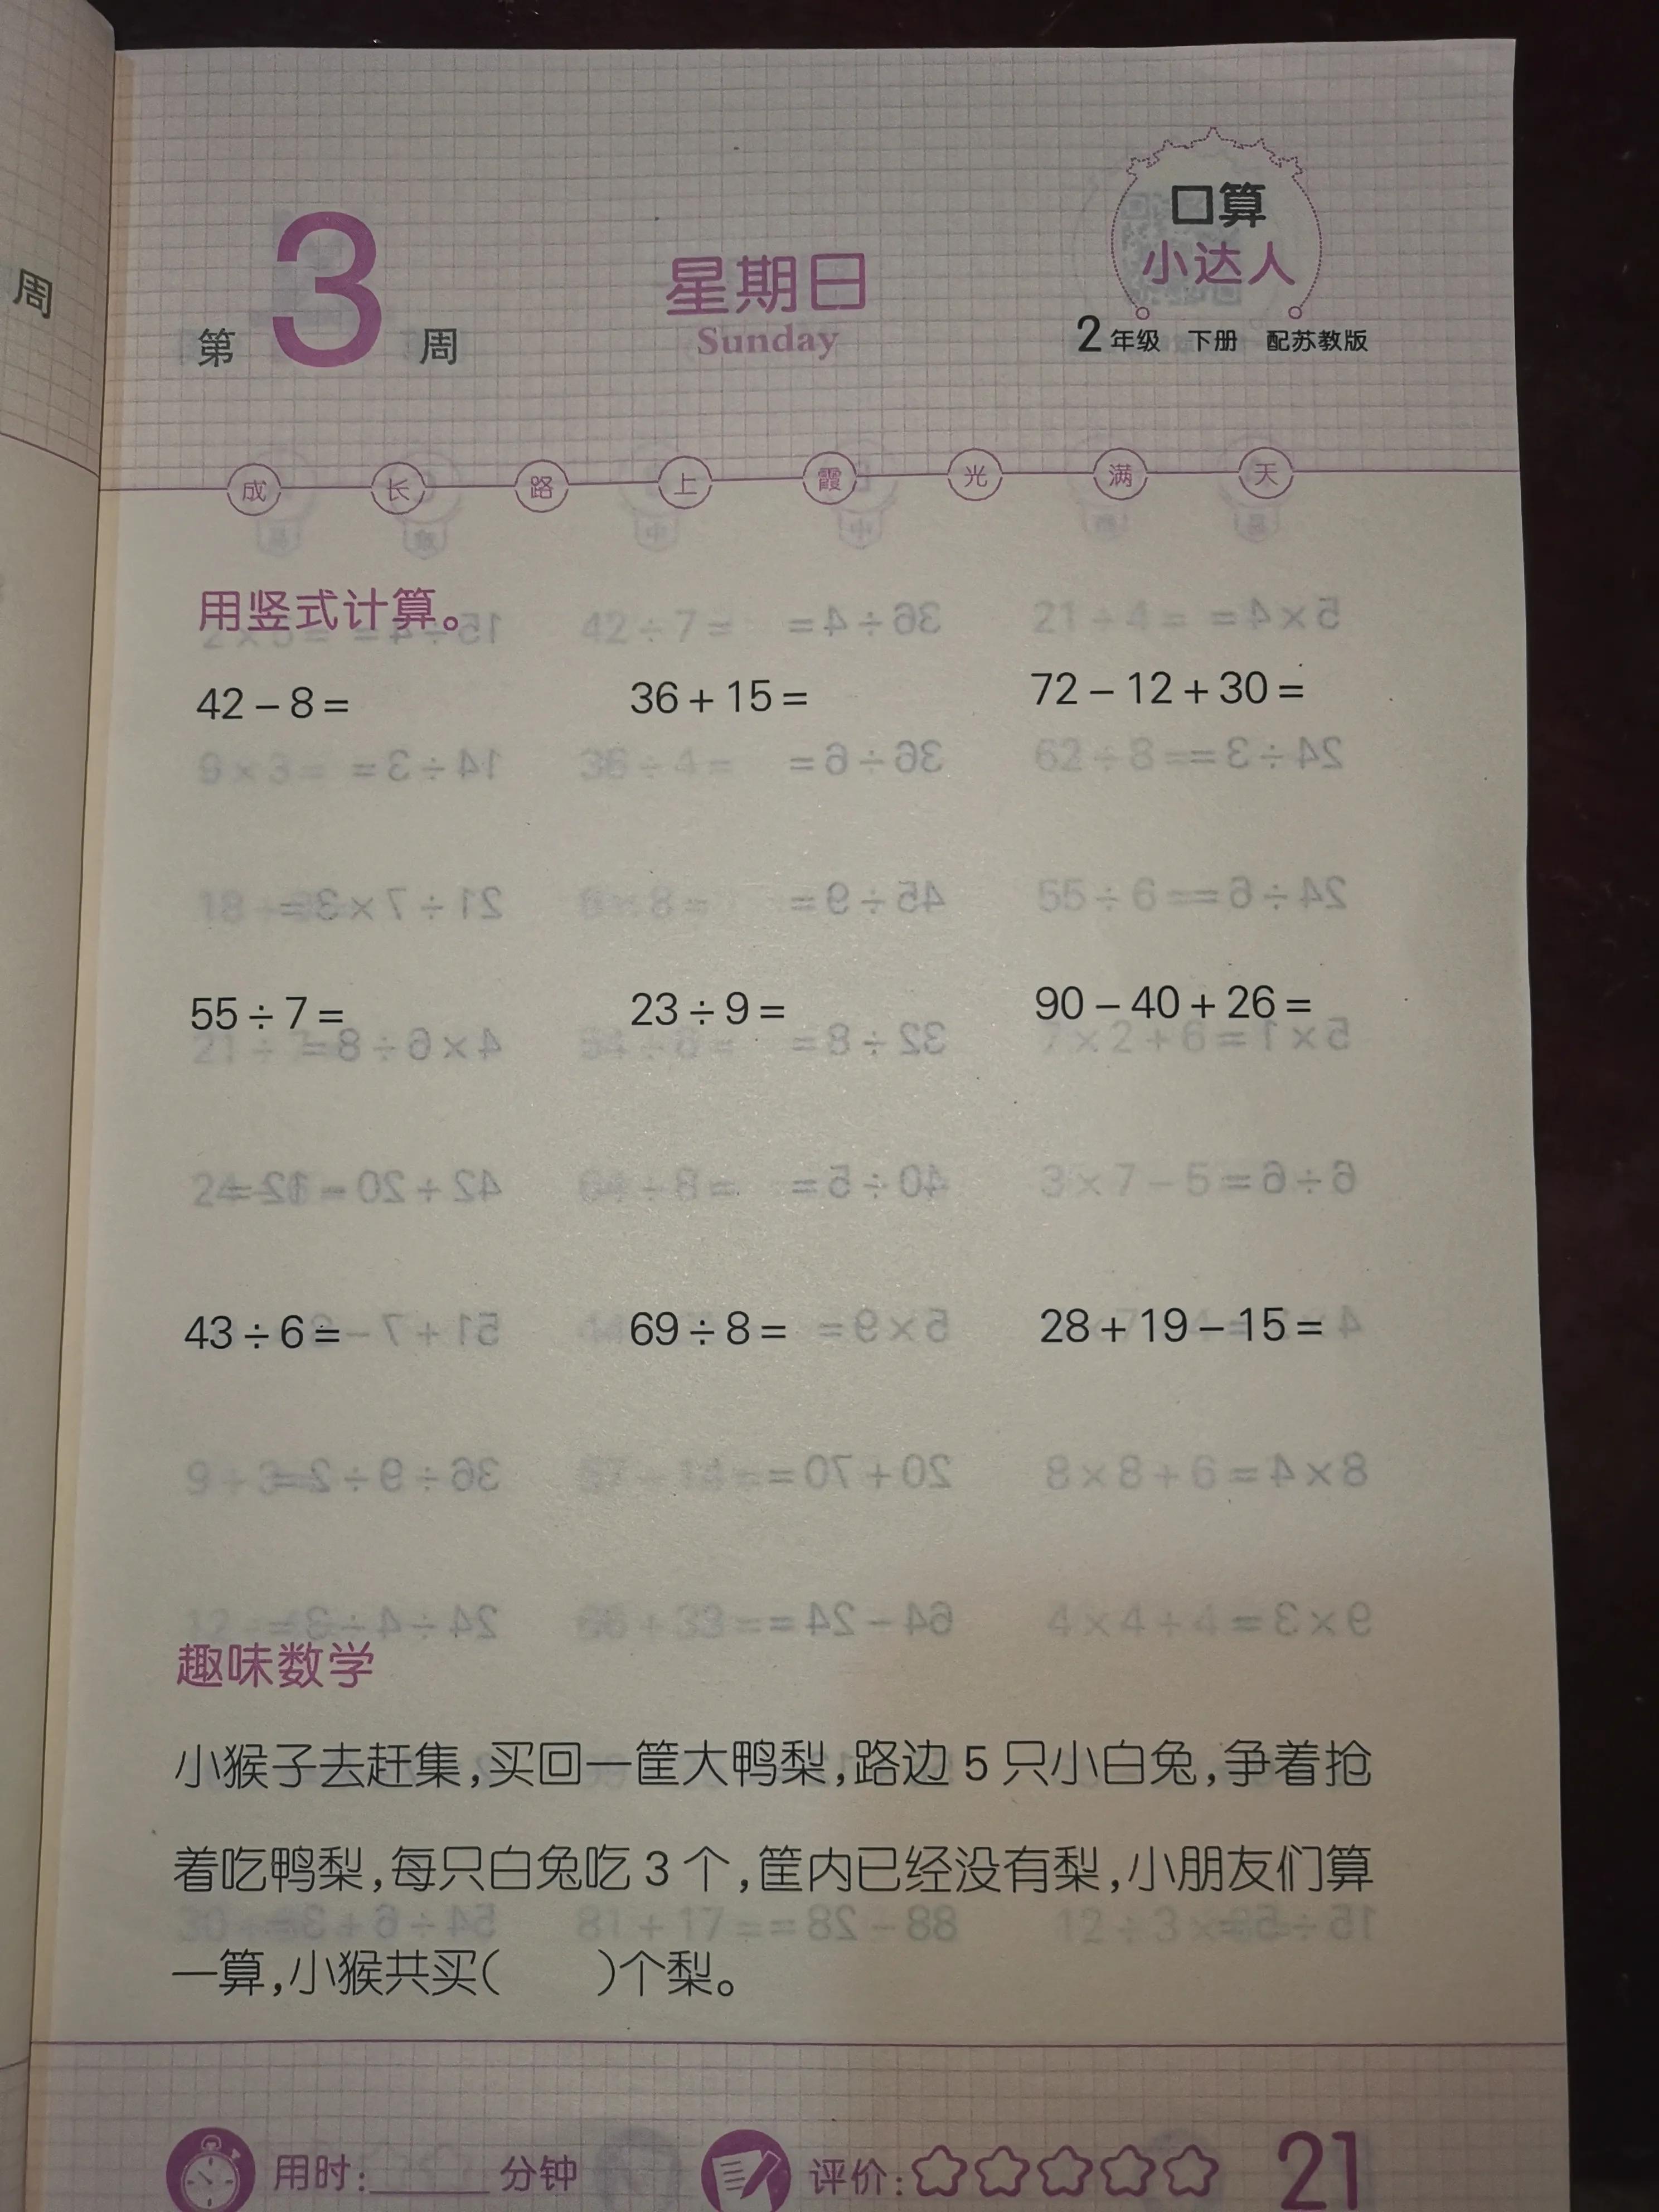 周
第3周
星期日
Sunday
口算
小达人
2年级 下册 配苏教版
成长路上霞光满天
用竖式计算。
42－8＝ 36＋15＝ 72－12＋30＝
55÷7＝ 23÷9＝ 90－40＋26＝
43÷6＝ 69÷8＝ 28＋19－15＝
趣味数学
小猴子去赶集,买回一筐大鸭梨,路边5只小白兔,争着抢
着吃鸭梨,每只白兔吃3个,筐内已经没有梨,小朋友们算
一算,小猴共买(　　)个梨。
用时:______分钟 评价: 21